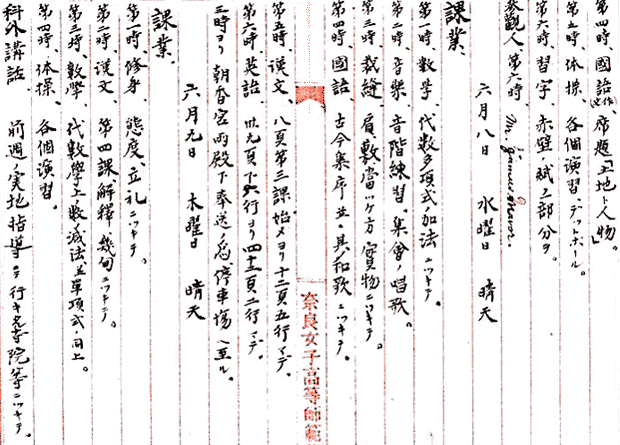 第四時、國語(作文)、席題「土地ト人物」。
第五時、体操、各個演習、デットボール。
第六時、習字、赤壁ノ賦ノ一部分ヲ。
参観人、第六時、Mr.
六月八日 水曜日 晴天
課業、
第一時、数学、代数多項式ノ加法ニツキテ。
第二時、音楽、音階練習。集會ノ唱歌。
第三時、裁縫、肩敷當ツケ方實物ニツキテ。
第四時、國語、古今集序並ニ其ノ和歌ニツキテ。
奈良女子高等師範
第五時、漢文、八頁第三課始メヨリ十二頁五行マデ。
第六時、英語、卅九頁下六行ヨリ四十三頁二行マデ。
三時ヨリ朝香宮両殿下奉送ノ為停車場ヘ至ル。
六月九日 木曜日 晴天
課業、
第一時、修身、態度、立礼ニツキテ。
第二時、漢文、第四課解釋幾句ニツキテ。
第三時、數學、代數學上ノ數ノ減法、並單項式ノ同上。
第四時、体操、各個演習。
科外講話 前週ノ実地指導ヲ行キ名寺院等ニツキテ。